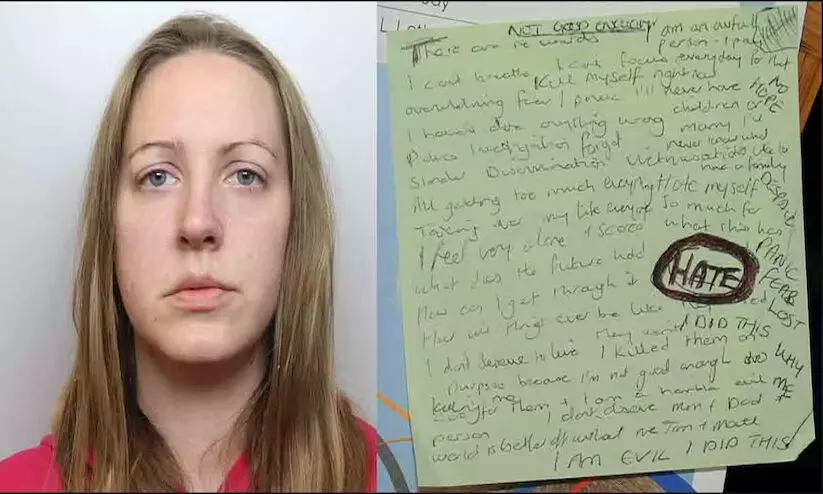 NOT GOOD ENOUGH
There are no words
am an awful
person - I pay
I can't breathe I can't focus everyday for that
Kill myself right now
overwhelming fear / panic I'll never have
NO
HOPE
children or
I haven't done anything wrong marry I'll
Police investigation forget never know what
Slander Discrimination Victimisation it's like to
have a family
All getting too much everything I hate myself
DESPAIR
Taking over my life everyone so much for
I feel very alone + scared what this has
What does the future hold
HATE
PANIC
FEAR
LOST
How can I get through it
How will things ever be like they used
I DID THIS
I don't deserve to live I killed them on
purpose because I'm not good enough
WHY
ME
care for them + I am a horrible evil
person I don't deserve Mum + Dad +
world is better off without me
I AM EVIL I DID THIS